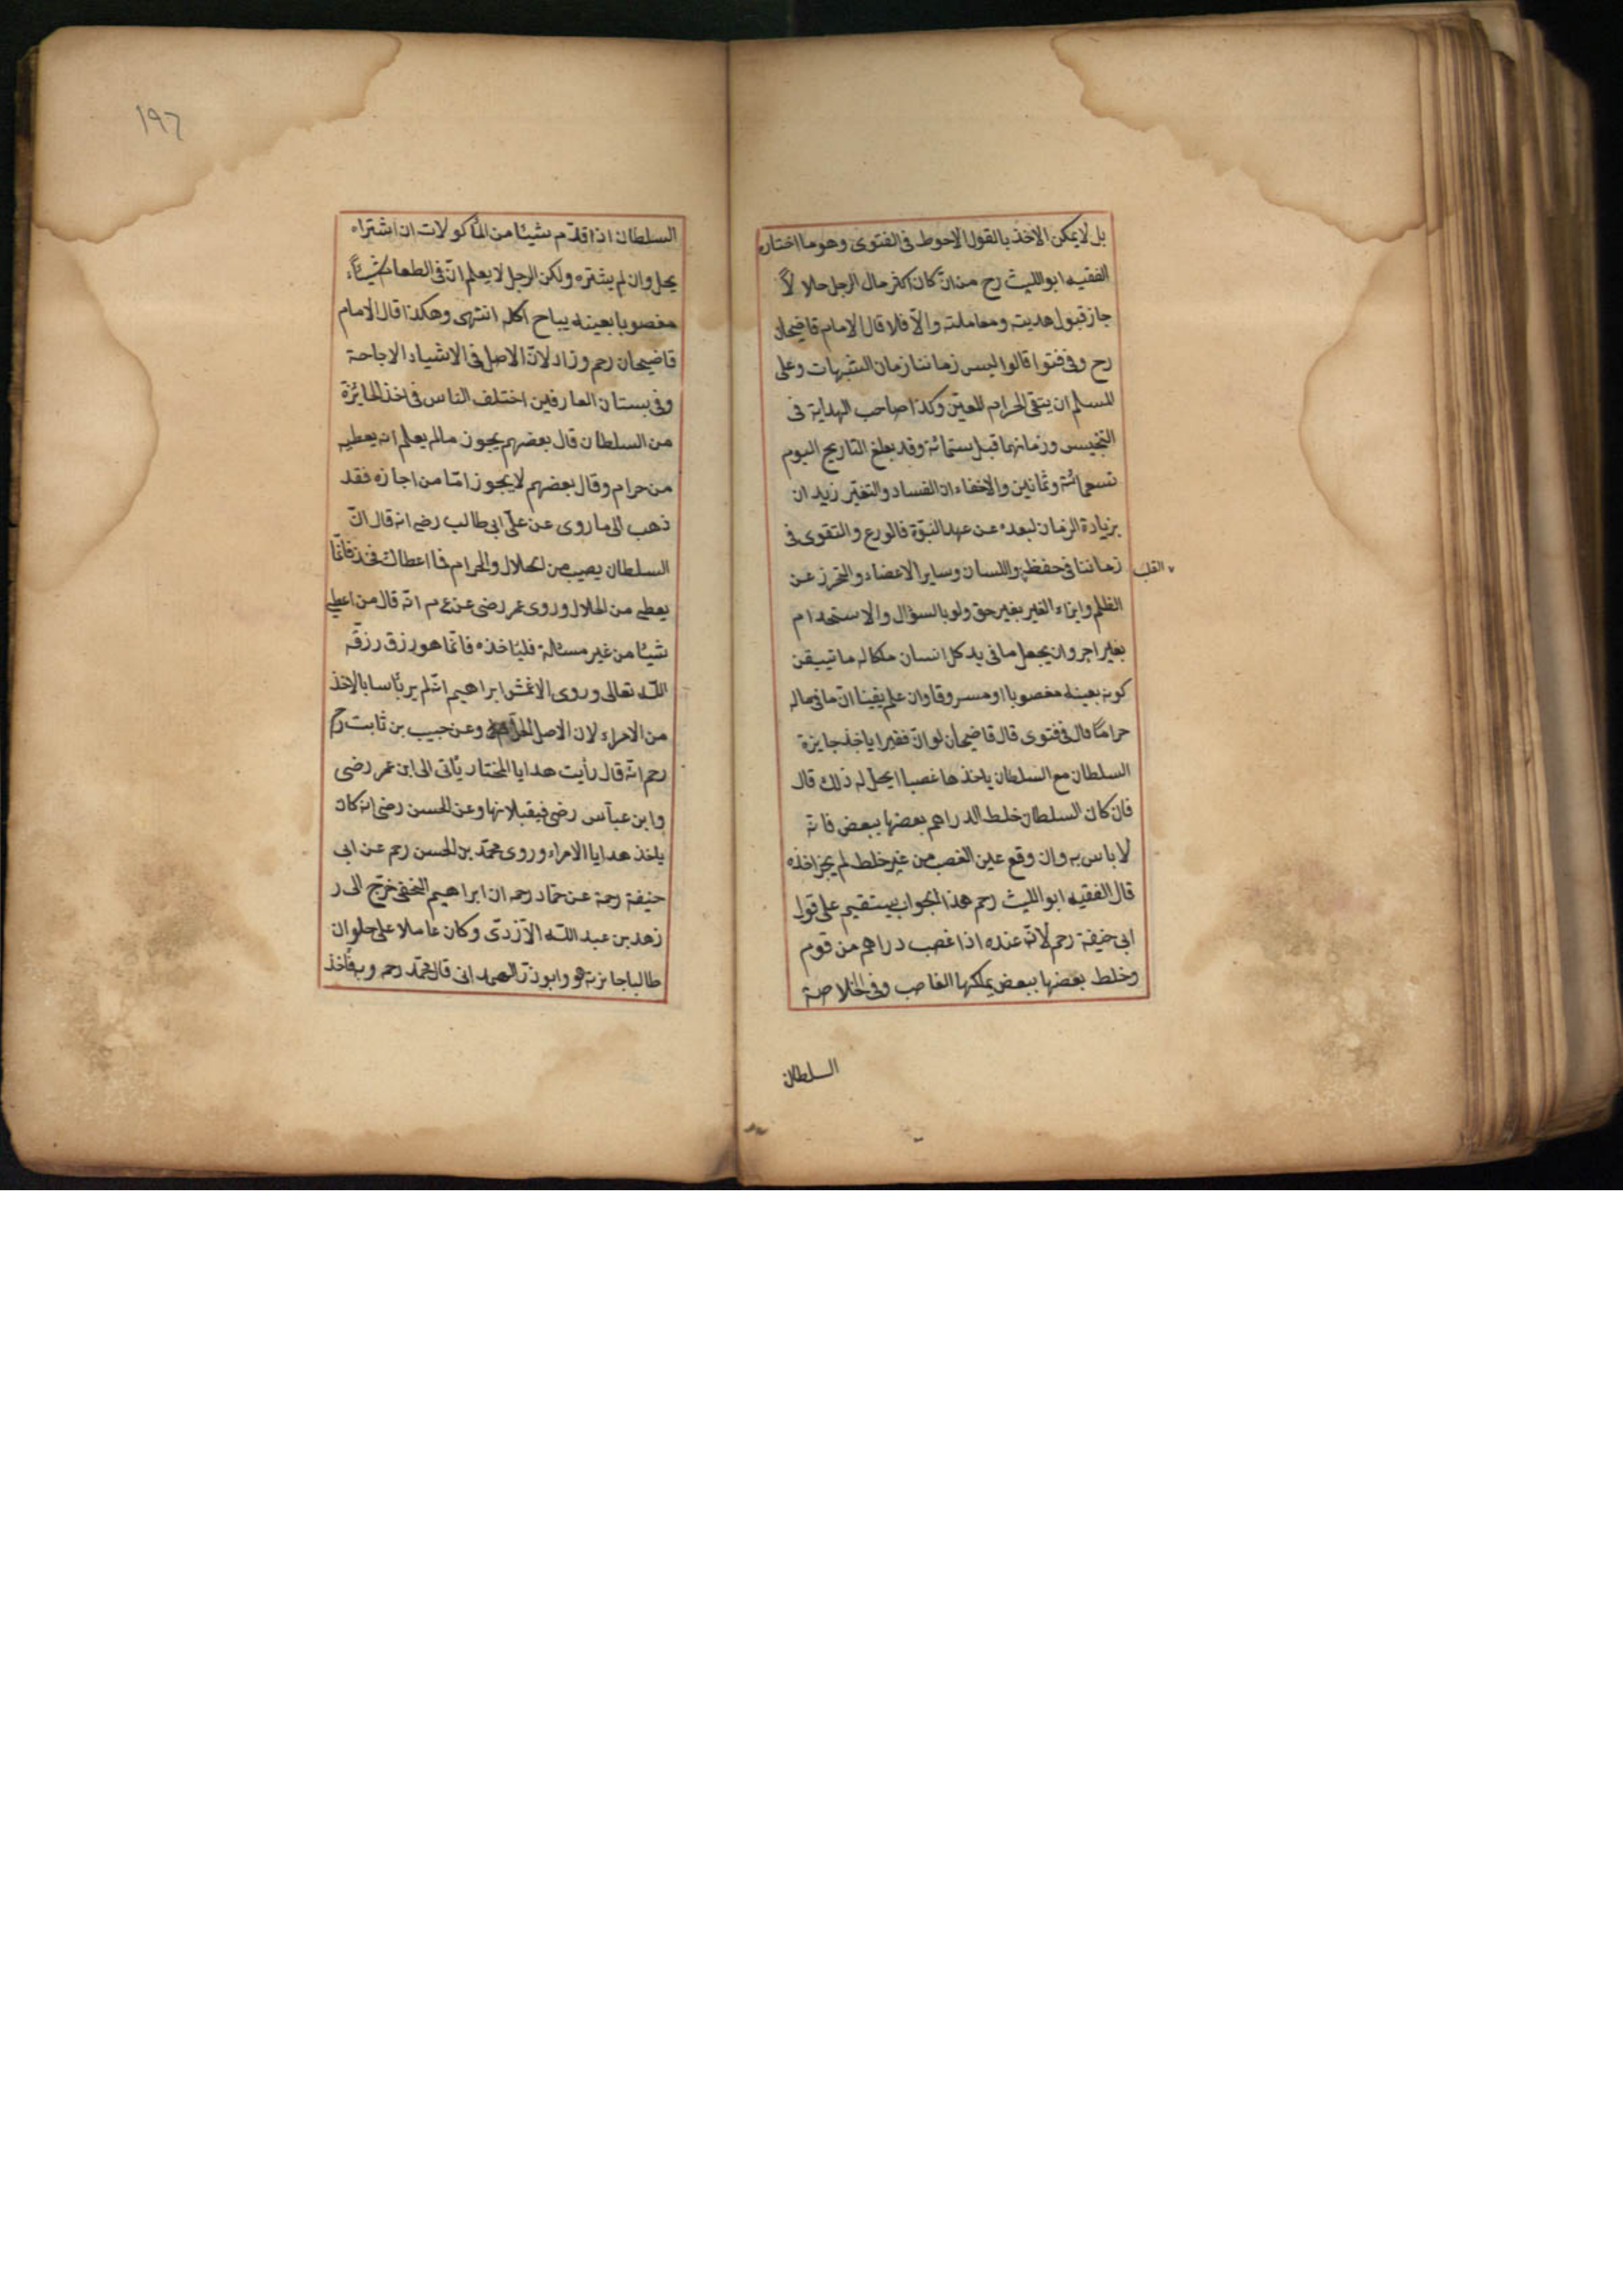 بل لا يمكن الاخذ بالقول الاحوط فى الفتوى وهو ما اختاره
الفقيه ابو الليث رح من انّ كان اكثر مال الرجل حلالاً
جاز قبول هديته ومعاملته والّا فلا قال الامام قاضيخان
رح وفى فتوا قالوا ليس زماننا زمان الشبهات وعلى
المسلم ان يتقى الحرام المعيّن وكذا صاحب الهداية فى
التجنيس وزمانهما قبل ستمائة وقد بلغ التاريخ اليوم
تسعمائة وثمانين والاخفاء ان الفساد والتغيّر زيد ان
بزيادة الزمان لبعده عن عهد النبّوة فالورع والتقوى فى
زماننا فى حفظ واللسان وساير الاعضاء والتحرز عن
القلب
الظلم وايذاء الغير بغير حق ولو بالسؤال والاستخدام
بغير اجر وان يجعل ما فى يد كل انسان ملكا له ما تيقن
كونه بعينه مغصوبا او مسروقا وان علم يقينا انّ ما فى ماله
حراما قال فى فتوى قال قاضيخان لو انّ فقيرا ياخذ جايزة
السلطان مع السلطان ياخذها غصبا ايحل له ذلك قال
فان كان السلطان خلط الدراهم بعضها ببعض فانه
لا باس به وان وقع عين الغصب من غير خلط لم يجز اخذه
قال الفقيه ابو الليث رحم هذا الجواب يستقيم على قول
ابى حنيفة رحم لانّه عنده اذا غصب دراهم من قوم
وخلط بعضها ببعض يملكها الغاصب وفى الخلاصة
السلطان
١٩٦
السلطان اذا قدّم شيئا من المأكولات ان اشتراه
يحل وان لم يشتره ولكن الرجل لا يعلم انّ فى الطعام شيئاً
مغصوبا بعينه يباح اكله انتهى وهكذا قال الامام
قاضيخان رحم وزاد لانّ الاصل فى الاشياء الاباحة
وفى بستان العارفين اختلف الناس فى اخذ الجائزة
من السلطان قال بعضهم يجوز مالم يعلم انه يعطيه
من حرام وقال بعضهم لا يجوز امّا من اجازه فقد
ذهب الى ما روى عن علىّ ابى طالب رضه انه قال انّ
السلطان يصيب من الحلال والحرام فما اعطاك فخذ فانّما
يعطى من الحلال وروى عمر رضى عن ع م انّه قال من اعطى
شيئا من غير مسئالة فليأخذه فانّما هو رزق رزقه
اللّه تعالى وروى الاعمش ابراهيم انّه لم ير بأسا بالاخذ
من الامراء لان الاصل وعن حبيب بن ثابت رح
رحم انّه قال رأيت هدايا المختار يأتى الى ابن عمر رضى
وابن عبّاس رضى فيقبلانها وعن الحسن رضى انه كان
ياخذ هدايا الامراء وروى محمّد بن الحسن رحم عن ابى
حنيفة رحمة عن حمّاد رحمه ان ابراهيم النخعى خرّج الى ر
زهد بن عبد اللّه الأزدىّ وكان عاملا على حلوان
طالبا جايزته هو وابو ذرّ الهمدانى قال محمّد رحم وبه فأخذ